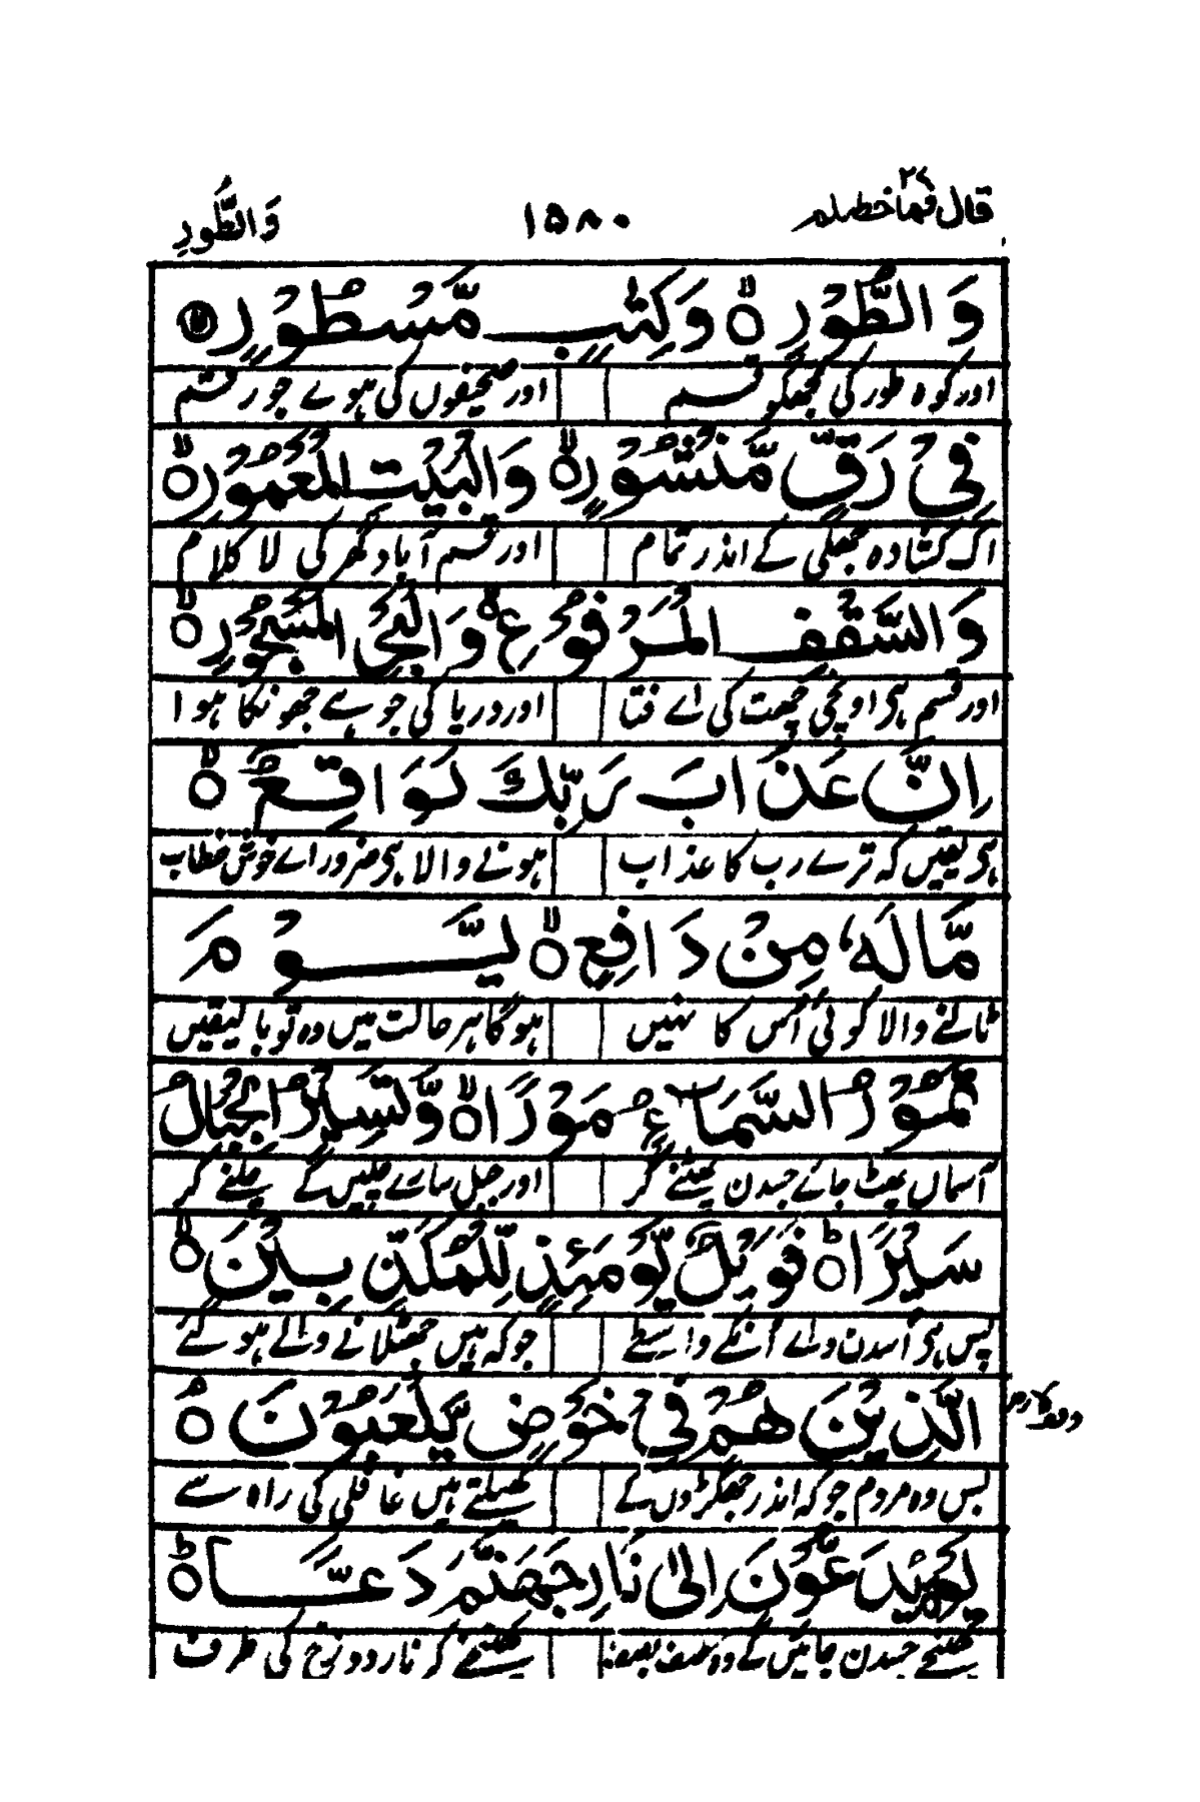 قال فما خطبکم ۲۷
۱۵۸۰
وَالطُّورِ
وَالطُّوْرِ ۙ وَكِتٰبٍ مَّسْطُوْرٍ ۙ
اور کوہ طور کی مجھکو قسم اور صحیفوں کی ہوے جو رقم
فِیْ رَقٍّ مَّنْشُوْرٍ ۙ وَالْبَیْتِ الْمَعْمُوْرِ ۙ
اک کشادہ جھلی کے اندر تمام اور قسم آباد گھر کی لا کلام
وَالسَّقْفِ الْمَرْفُوْعِ ۙ وَالْبَحْرِ الْمَسْجُوْرِ ۙ
اور قسم ہی اونچی چھت کی اے فتا اور دریا کی جو ہے جھونکا ہوا
اِنَّ عَذَابَ رَبِّكَ لَوَاقِعٌ ۙ
ہی یقیں کہ ترے رب کا عذاب ہونے والا ہی ضرور اے خوش خطاب
مَّالَهٗ مِنْ دَافِعٍ ۙ یَّوْمَ
ٹالنے والا کوئی اُس کا نہیں ہوگا ہر حالت میں وہ تو بالیقیں
تَمُوْرُ السَّمَآءُ مَوْرًا ۙ وَّتَسِیْرُ الْجِبَالُ
آسماں پھٹ جائے جسدن پھٹنے کر اور جبل سارے چلیں گے چلنے کر
سَیْرًا ؕ فَوَیْلٌ یَّوْمَئِذٍ لِّلْمُكَذِّبِیْنَ ۙ
پس ہی اُسدن واے اُنکے واسطے جو کہ ہیں جھٹلانے والے ہوگئے
الَّذِیْنَ هُمْ فِیْ خَوْضٍ یَّلْعَبُوْنَ ۘ
وقف لازم
بس وہ مردم جو کہ اندر جھگڑوں کے کھیلتے ہیں غافلی کی راہ سے
یَوْمَ یُدَعُّوْنَ اِلٰی نَارِ جَهَنَّمَ دَعًّا ؕ
کھنچے جسدن جائیں گے وہ کھینچنے کر نار دوزخ کی طرف